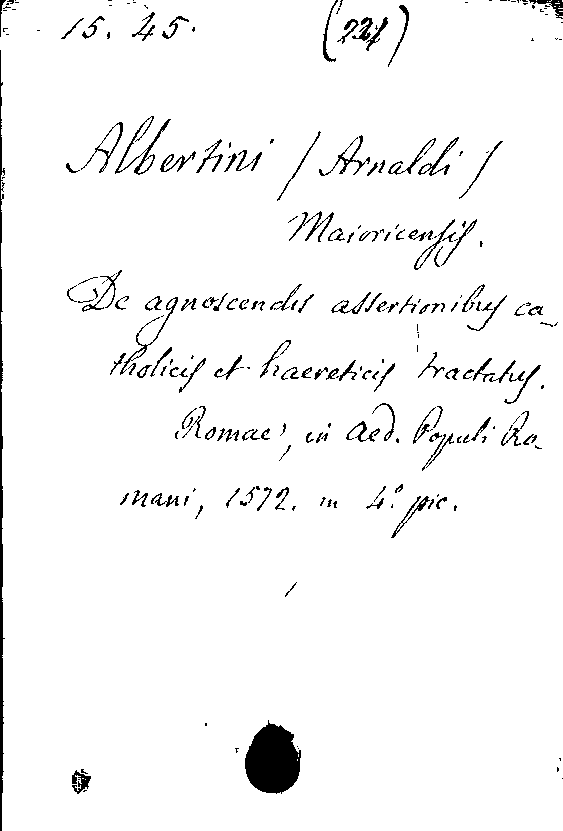 15. 45. (221)
Albertini / Arnaldi /
Maioricensis.
De agnoscendis assertionibus ca-
tholicis et haereticis tractatus.
Romae, in aed. Populi Ro-
mani, 1572. in 4.º pic.